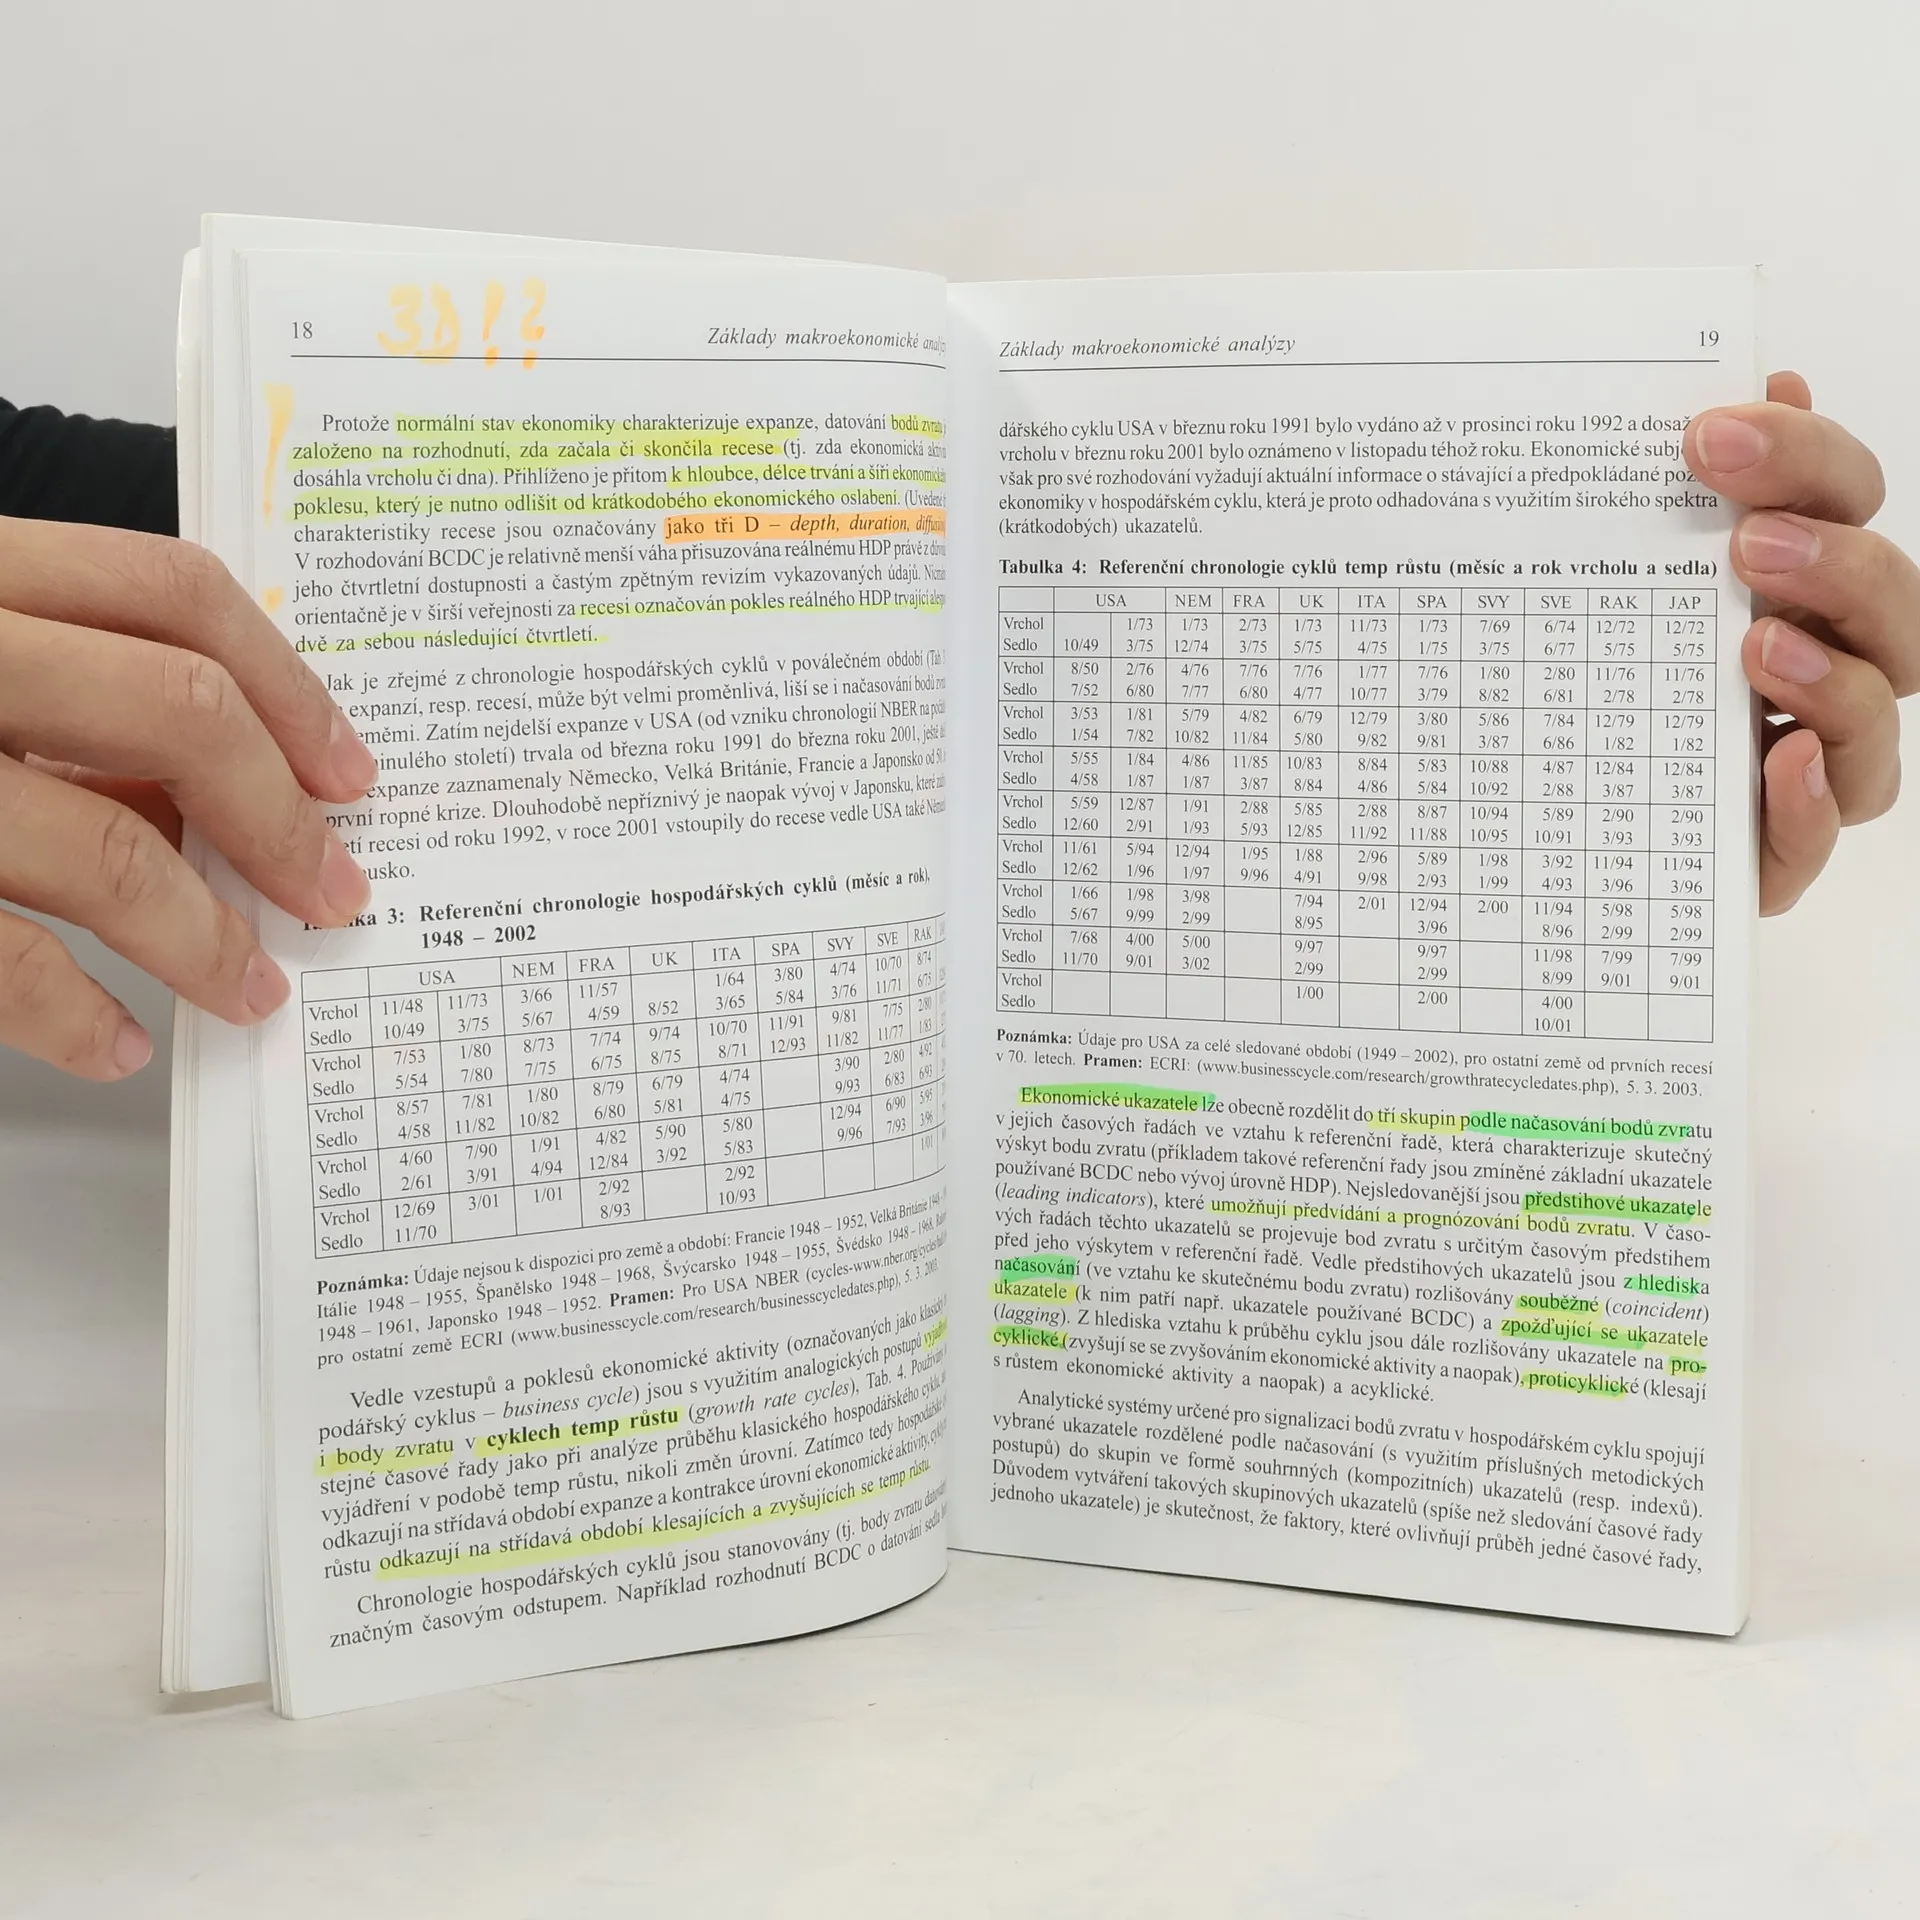 18
3D!?
Základy makroekonomické
Protože normální stav ekonomiky charakterizuje expanze, datování bodů
založeno na rozhodnutí, zda začala či skončila recese (tj. zda ekonomická
dosáhla vrcholu či dna). Přihlíženo je přitom k hloubce, délce trvání a šíři
poklesu, který je nutno odlišit od krátkodobého ekonomického oslabení. (Uvedené
charakteristiky recese jsou označovány jako tři D – depth, duration,
V rozhodování BCDC je relativně menší váha přisuzována reálnému HDP právě z
jeho čtvrtletní dostupnosti a častým zpětným revizím vykazovaných údajů.
orientačně je v širší veřejnosti za recesi označován pokles reálného HDP trvající
dvě za sebou následující čtvrtletí.
Jak je zřejmé z chronologie hospodářských cyklů v poválečném období (Tab
expanzí, resp. recesí, může být velmi proměnlivá, liší se i načasování bodů
Zatím nejdelší expanze v USA (od vzniku chronologií NBER na
století) trvala od března roku 1991 do března roku 2001, ještě
expanze zaznamenaly Německo, Velká Británie, Francie a Japonsko od
první ropné krize. Dlouhodobě nepříznivý je naopak vývoj v Japonsku, které
recesi od roku 1992, v roce 2001 vstoupily do recese vedle USA také
3: Referenční chronologie hospodářských cyklů (měsíc a rok),
1948 – 2002
USA NEM FRA UK ITA SPA SVY SVE RAK
Vrchol 11/48 11/73 3/66 11/57 1/64 3/80 4/74 10/70 8/74
Sedlo 10/49 3/75 5/67 4/59 8/52 3/65 5/84 3/76 11/71 6/75
Vrchol 7/53 1/80 8/73 7/74 9/74 10/70 11/91 9/81 7/75 2/80
Sedlo 5/54 7/80 7/75 6/75 8/75 8/71 12/93 11/82 11/77 1/83
Vrchol 8/57 7/81 1/80 8/79 6/79 4/74 3/90 2/80 4/92
Sedlo 4/58 11/82 10/82 6/80 5/81 4/75 9/93 6/83 6/93
Vrchol 4/60 7/90 1/91 4/82 5/90 5/80 12/94 6/90 5/95
Sedlo 2/61 3/91 4/94 12/84 3/92 5/83 9/96 7/93 3/96
Vrchol 12/69 3/01 1/01 2/92 2/92 1/01
Sedlo 11/70 8/93 10/93
Poznámka: Údaje nejsou k dispozici pro země a období: Francie 1948 – 1952, Velká Británie
Itálie 1948 – 1955, Španělsko 1948 – 1968, Švýcarsko 1948 – 1955, Švédsko 1948 – 1968,
1948 – 1961, Japonsko 1948 – 1952. Pramen: Pro USA NBER (cycles-www.nber.org/cycles/
pro ostatní země ECRI (www.businesscycle.com/research/businesscycledates.php), 5. 3. 2003.
Vedle vzestupů a poklesů ekonomické aktivity (označovaných jako klasický
podářský cyklus – business cycle) jsou s využitím analogických postupů
i body zvratu v cyklech temp růstu (growth rate cycles), Tab. 4.
stejné časové řady jako při analýze průběhu klasického hospodářského cyklu,
vyjádření v podobě temp růstu, nikoli změn úrovní. Zatímco tedy
odkazují na střídavá období expanze a kontrakce úrovní ekonomické aktivity,
růstu odkazují na střídavá období klesajících a zvyšujících se temp růstu.
Chronologie hospodářských cyklů jsou stanovovány (tj. body zvratu
značným časovým odstupem. Například rozhodnutí BCDC o datování sedla
Základy makroekonomické analýzy
19
dářského cyklu USA v březnu roku 1991 bylo vydáno až v prosinci roku 1992 a
vrcholu v březnu roku 2001 bylo oznámeno v listopadu téhož roku. Ekonomické
však pro své rozhodování vyžadují aktuální informace o stávající a předpokládané
ekonomiky v hospodářském cyklu, která je proto odhadována s využitím širokého spektra
(krátkodobých) ukazatelů.
Tabulka 4: Referenční chronologie cyklů temp růstu (měsíc a rok vrcholu a sedla)
USA NEM FRA UK ITA SPA SVY SVE RAK JAP
Vrchol 1/73 1/73 2/73 1/73 11/73 1/73 7/69 6/74 12/72 12/72
Sedlo 10/49 3/75 12/74 3/75 5/75 4/75 1/75 3/75 6/77 5/75 5/75
Vrchol 8/50 2/76 4/76 7/76 7/76 1/77 7/76 1/80 2/80 11/76 11/76
Sedlo 7/52 6/80 7/77 6/80 4/77 10/77 3/79 8/82 6/81 2/78 2/78
Vrchol 3/53 1/81 5/79 4/82 6/79 12/79 3/80 5/86 7/84 12/79 12/79
Sedlo 1/54 7/82 10/82 11/84 5/80 9/82 9/81 3/87 6/86 1/82 1/82
Vrchol 5/55 1/84 4/86 11/85 10/83 8/84 5/83 10/88 4/87 12/84 12/84
Sedlo 4/58 1/87 1/87 3/87 8/84 4/86 5/84 10/92 2/88 3/87 3/87
Vrchol 5/59 12/87 1/91 2/88 5/85 2/88 8/87 10/94 5/89 2/90 2/90
Sedlo 12/60 2/91 1/93 5/93 12/85 11/92 11/88 10/95 10/91 3/93 3/93
Vrchol 11/61 5/94 12/94 1/95 1/88 2/96 5/89 1/98 3/92 11/94 11/94
Sedlo 12/62 1/96 1/97 9/96 4/91 9/98 2/93 1/99 4/93 3/96 3/96
Vrchol 1/66 1/98 3/98 7/94 2/01 12/94 2/00 11/94 5/98 5/98
Sedlo 5/67 9/99 2/99 8/95 3/96 8/96 2/99 2/99
Vrchol 7/68 4/00 5/00 9/97 9/97 11/98 7/99 7/99
Sedlo 11/70 9/01 3/02 2/99 2/99 8/99 9/01 9/01
Vrchol 1/00 2/00 4/00
Sedlo 10/01
Poznámka: Údaje pro USA za celé sledované období (1949 – 2002), pro ostatní země od prvních recesí
v 70. letech. Pramen: ECRI: (www.businesscycle.com/research/growthratecycledates.php), 5. 3. 2003.
Ekonomické ukazatele lze obecně rozdělit do tří skupin podle načasování bodů zvratu
v jejich časových řadách ve vztahu k referenční řadě, která charakterizuje skutečný
výskyt bodu zvratu (příkladem takové referenční řady jsou zmíněné základní ukazatele
používané BCDC nebo vývoj úrovně HDP). Nejsledovanější jsou předstihové ukazatele
(leading indicators), které umožňují předvídání a prognózování bodů zvratu. V časo-
vých řadách těchto ukazatelů se projevuje bod zvratu s určitým časovým předstihem
před jeho výskytem v referenční řadě. Vedle předstihových ukazatelů jsou z hlediska
načasování (ve vztahu ke skutečnému bodu zvratu) rozlišovány souběžné (coincident)
ukazatele (k nim patří např. ukazatele používané BCDC) a zpožďující se ukazatele
(lagging). Z hlediska vztahu k průběhu cyklu jsou dále rozlišovány ukazatele na pro-
cyklické (zvyšují se se zvyšováním ekonomické aktivity a naopak), proticyklické (klesají
s růstem ekonomické aktivity a naopak) a acyklické.
Analytické systémy určené pro signalizaci bodů zvratu v hospodářském cyklu spojují
vybrané ukazatele rozdělené podle načasování (s využitím příslušných metodických
postupů) do skupin ve formě souhrnných (kompozitních) ukazatelů (resp. indexů).
Důvodem vytváření takových skupinových ukazatelů (spíše než sledování časové řady
jednoho ukazatele) je skutečnost, že faktory, které ovlivňují průběh jedné časové řady,